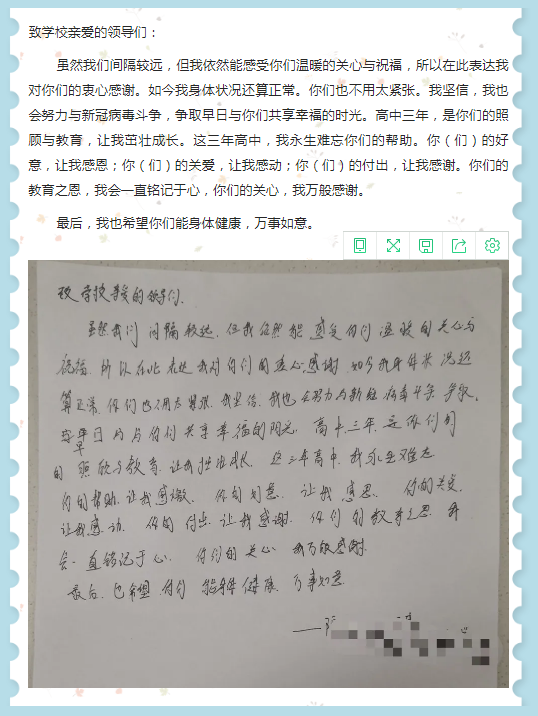 致学校亲爱的领导们：
虽然我们间隔较远，但我依然能感受你们温暖的关心与祝福，所以在此表达我
对你们的衷心感谢。如今我身体状况还算正常。你们也不用太紧张。我坚信，我也
会努力与新冠病毒斗争，争取早日与你们共享幸福的时光。高中三年，是你们的照
顾与教育，让我茁壮成长。这三年高中，我永生难忘你们的帮助。你（们）的好
意，让我感恩；你（们）的关爱，让我感动；你（们）的付出，让我感谢。你们的
教育之恩，我会一直铭记于心，你们的关心，我万般感谢。
最后，我也希望你们能身体健康，万事如意。
致学校亲爱的领导们.
虽然我们间隔较远，但我依然能感受你们温暖的关心与
祝福，所以在此表达我对你们的衷心感谢.如今我身体状况还
算正常.你们也不用太紧张.我坚信，我也会努力与新冠病毒斗争 争取.
早日与你们共享幸福的阳光. 高中三年，是你们
的照顾与教育，让我茁壮成长. 这三年高中，我永生难忘
你的帮助.让我感激. 你的好意，让我感恩. 你的关爱，
让我感动. 你的付出，让我感谢. 你们的教育之恩 我
会一直铭记于心. 你们的关心 我万般感谢.
最后，也希望你们能身体健康，万事如意.